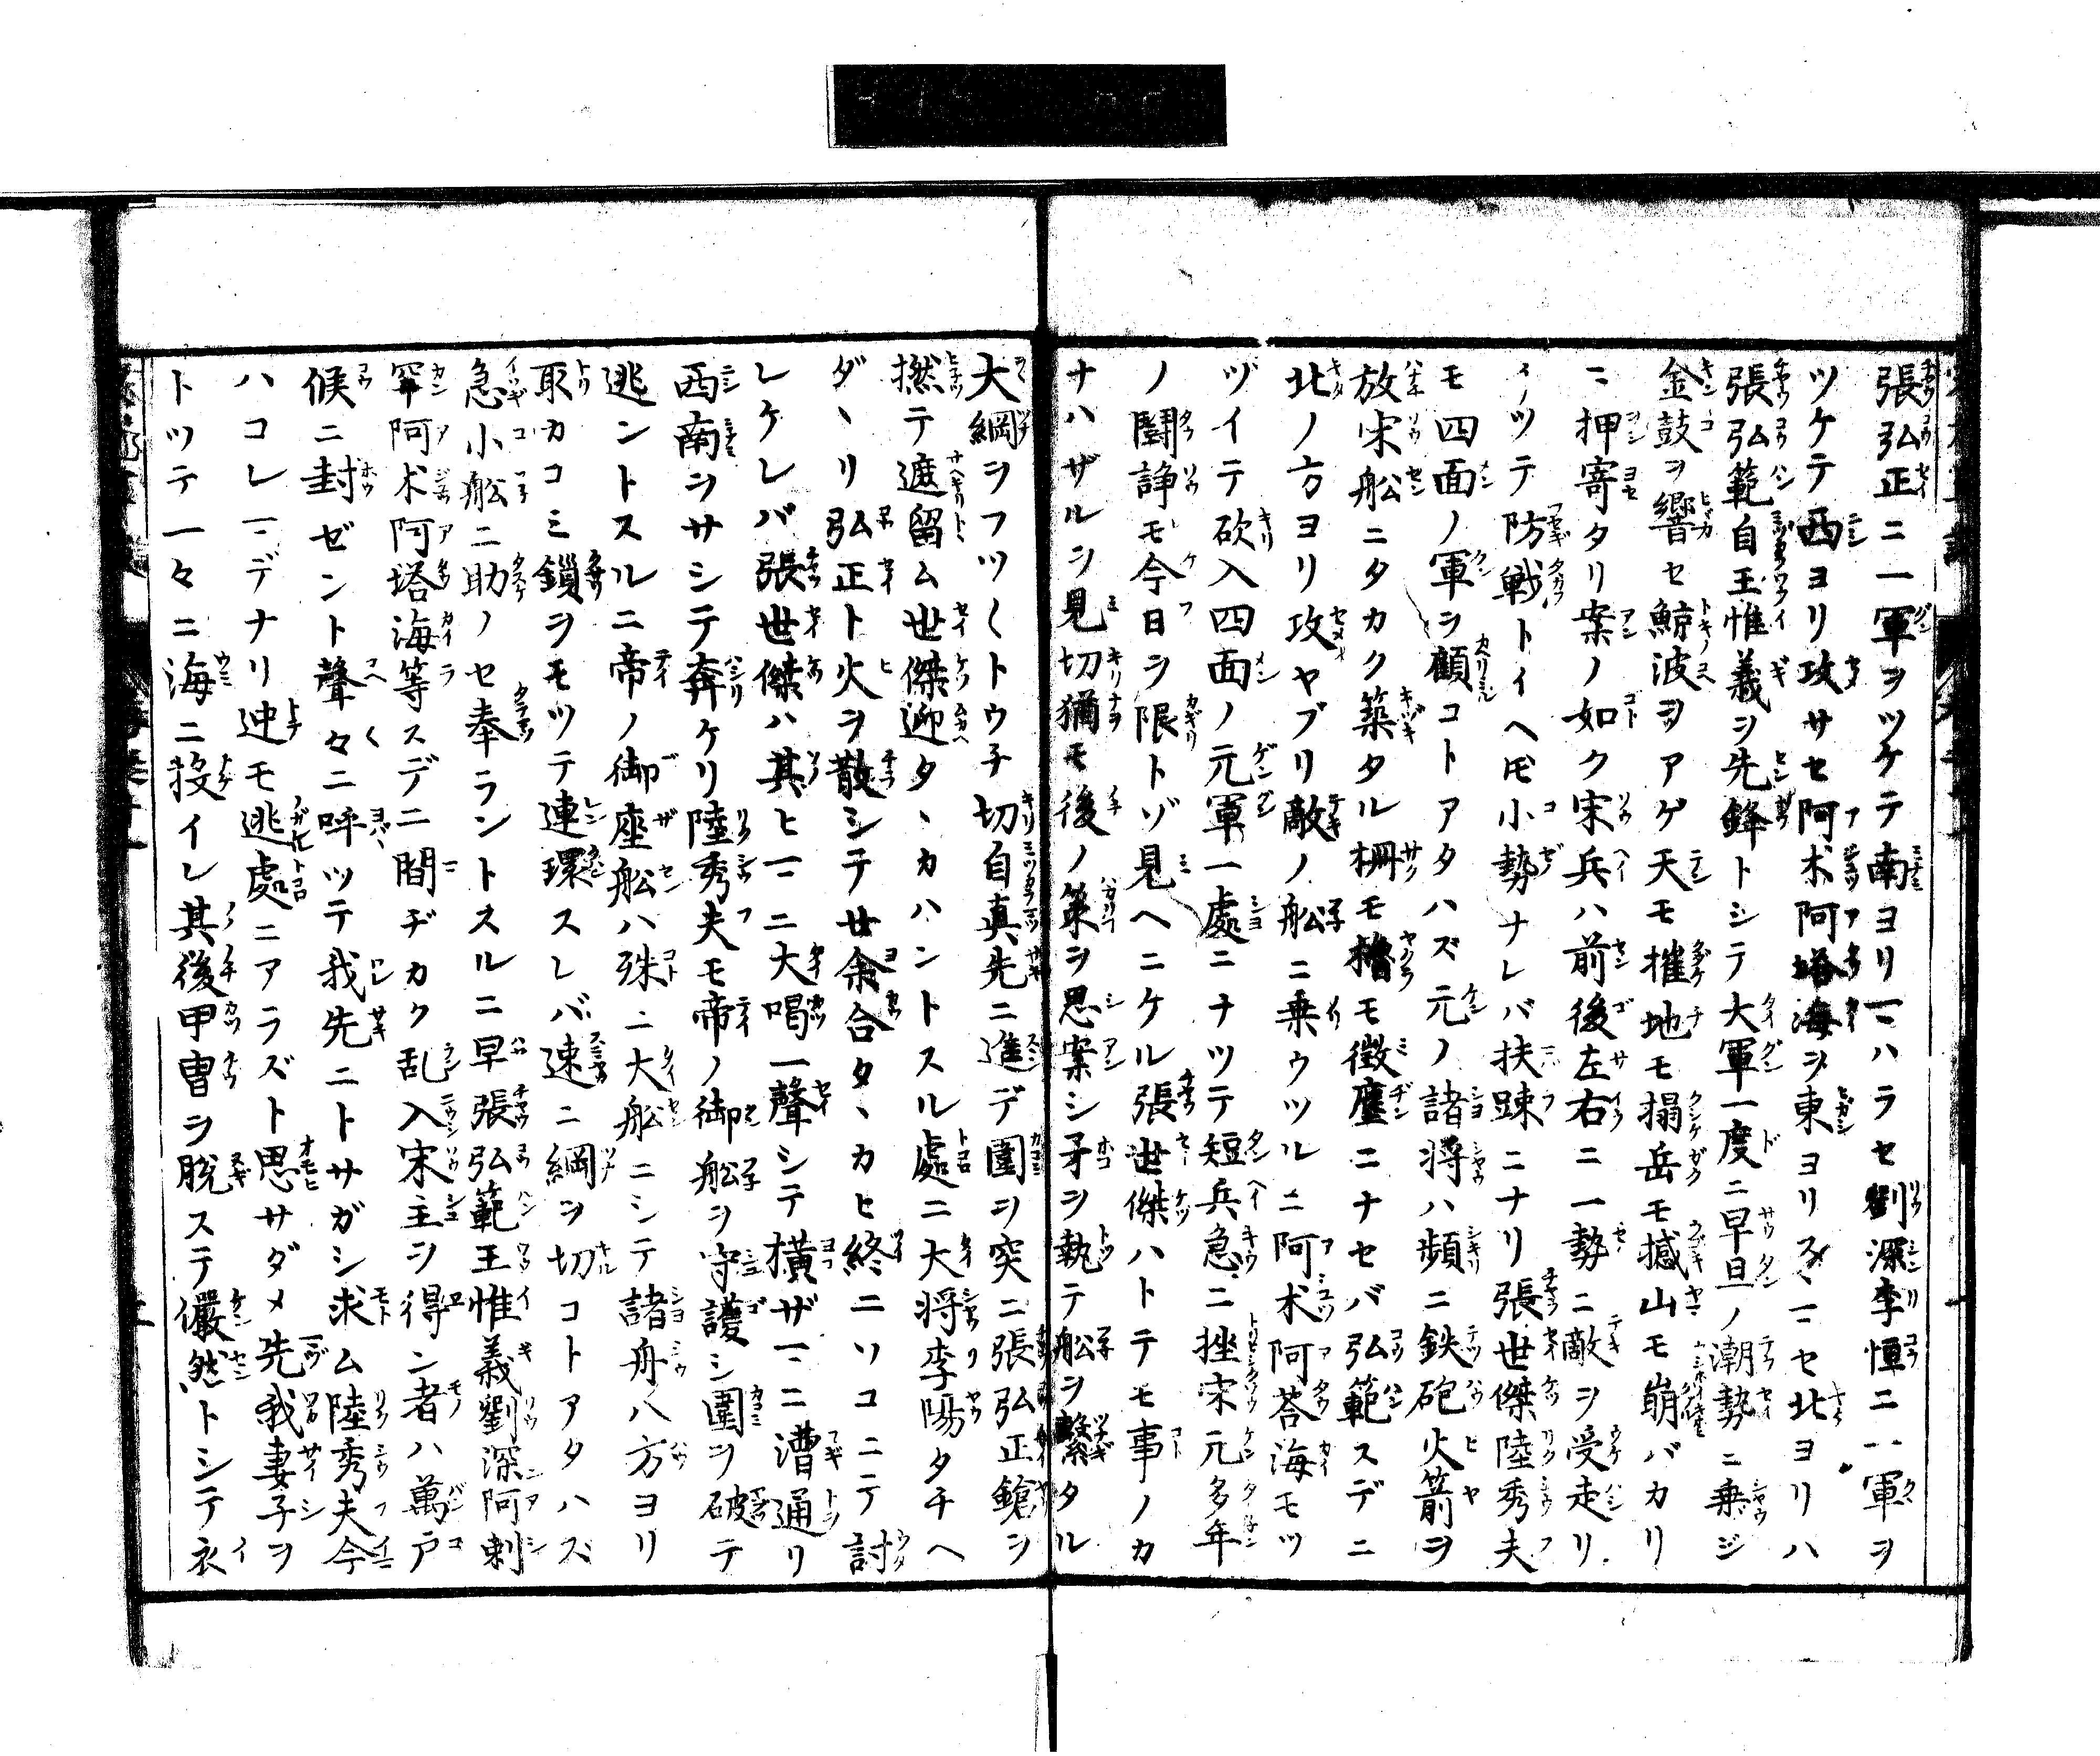 張弘正ニ一軍ヲツケテ南ヨリマハラセ劉深李恒ニ一軍ヲ
ツケテ西ヨリ攻サセ阿朮阿塔海ヲ東ヨリスヽマセ北ヨリハ
張弘範自王惟義ヲ先鋒トシテ大軍一度ニ早旦ノ潮勢ニ乗ジ
金鼓ヲ響セ鯨波ヲアゲ天モ摧地モ搨岳モ撼山モ崩バカリ
ニ押寄タリ案ノ如ク宋兵ハ前後左右ニ一勢ニ敵ヲ受走リ
イツテ防戦トイヘ𪜈小勢ナレバ扶踈ニナリ張世傑陸秀夫
モ四面ノ軍ヲ顧コトアタハズ元ノ諸将ハ頻ニ鉄砲火箭ヲ
放宋船ニタカク築タル柵モ櫓モ微塵ニナセバ弘範スデニ
北ノ方ヨリ攻ヤブリ敵ノ船ニ乗ウツルニ阿朮阿荅海モツ
ヅイテ砍入四面ノ元軍一處ニナツテ短兵急ニ挫宋元多年
ノ鬪諍モ今日ヲ限トゾ見ヘニケル張世傑ハトテモ事ノカ
ナハザルヲ見切猶モ後ノ策ヲ思案シ矛ヲ執テ船ヲ繋タル
大綱ヲフツ〱トウチ切自真先ニ進デ圍ヲ突ニ張弘正鎗ヲ
撚テ遮留ム世傑迎タヽカハントスル處ニ大将李陽タチヘ
ダヽリ弘正ト火ヲ散シテ廿余合タヽカヒ終ニソコニテ討
レケレバ張世傑ハ其ヒマニ大喝一聲シテ横ザマニ漕通リ
西南ヲサシテ奔ケリ陸秀夫モ帝ノ御船ヲ守護シ圍ヲ破テ
逃ントスルニ帝ノ御座船ハ殊ニ大船ニシテ諸舟八方ヨリ
取カコミ鎖ヲモツテ連環スレバ速ニ綱ヲ切コトアタハズ
急小船ニ助ノセ奉ラントスルニ早張弘範王惟義劉深阿剌
罕阿朮阿塔海等スデニ間ヂカク乱入宋主ヲ得ン者ハ萬戸
候ニ封ゼント聲々ニ呼ツテ我先ニトサガシ求ム陸秀夫今
ハコレマデナリ迚モ逃處ニアラズト思サダメ先我妻子ヲ
トツテ一々ニ海ニ投イレ其後甲冑ヲ脱ステ儼然トシテ衣